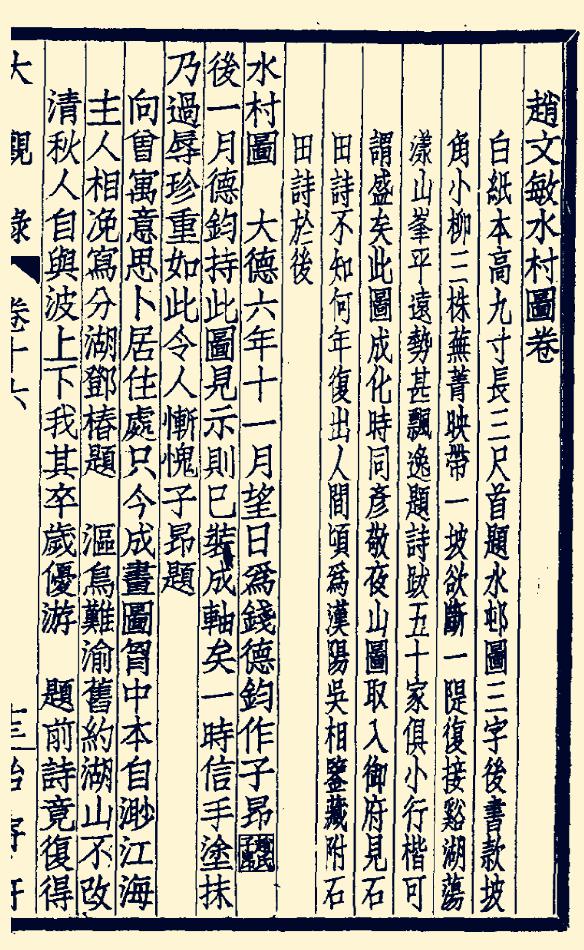 趙文敏水村圖卷
白紙本高九寸長三尺首題水邨圖三字後書款坡
角小柳三株蕪菁映帶一坡欲斷一隄復接谿湖蕩
漾山峯平遠勢甚飄逸題詩跋五十家俱小行楷可
謂盛矣此圖成化時同彥敬夜山圖取入御府見石
田詩不知何年復出人間頃爲漢陽吳相鑒藏附石
田詩於後
水村圖 大德六年十一月望日爲錢德鈞作子昂
後一月德鈞持此圖見示則已裝成軸矣一時信手塗抹
乃過辱珍重如此令人慚愧子昂題
向曾寓意思卜居住處只今成畫圖胷中本自渺江海
主人相浼寫分湖鄧椿題 漚鳥難渝舊約湖山不改
清秋人自與波上下我其卒歲優游 題前詩竟復得
大觀錄 卷十六